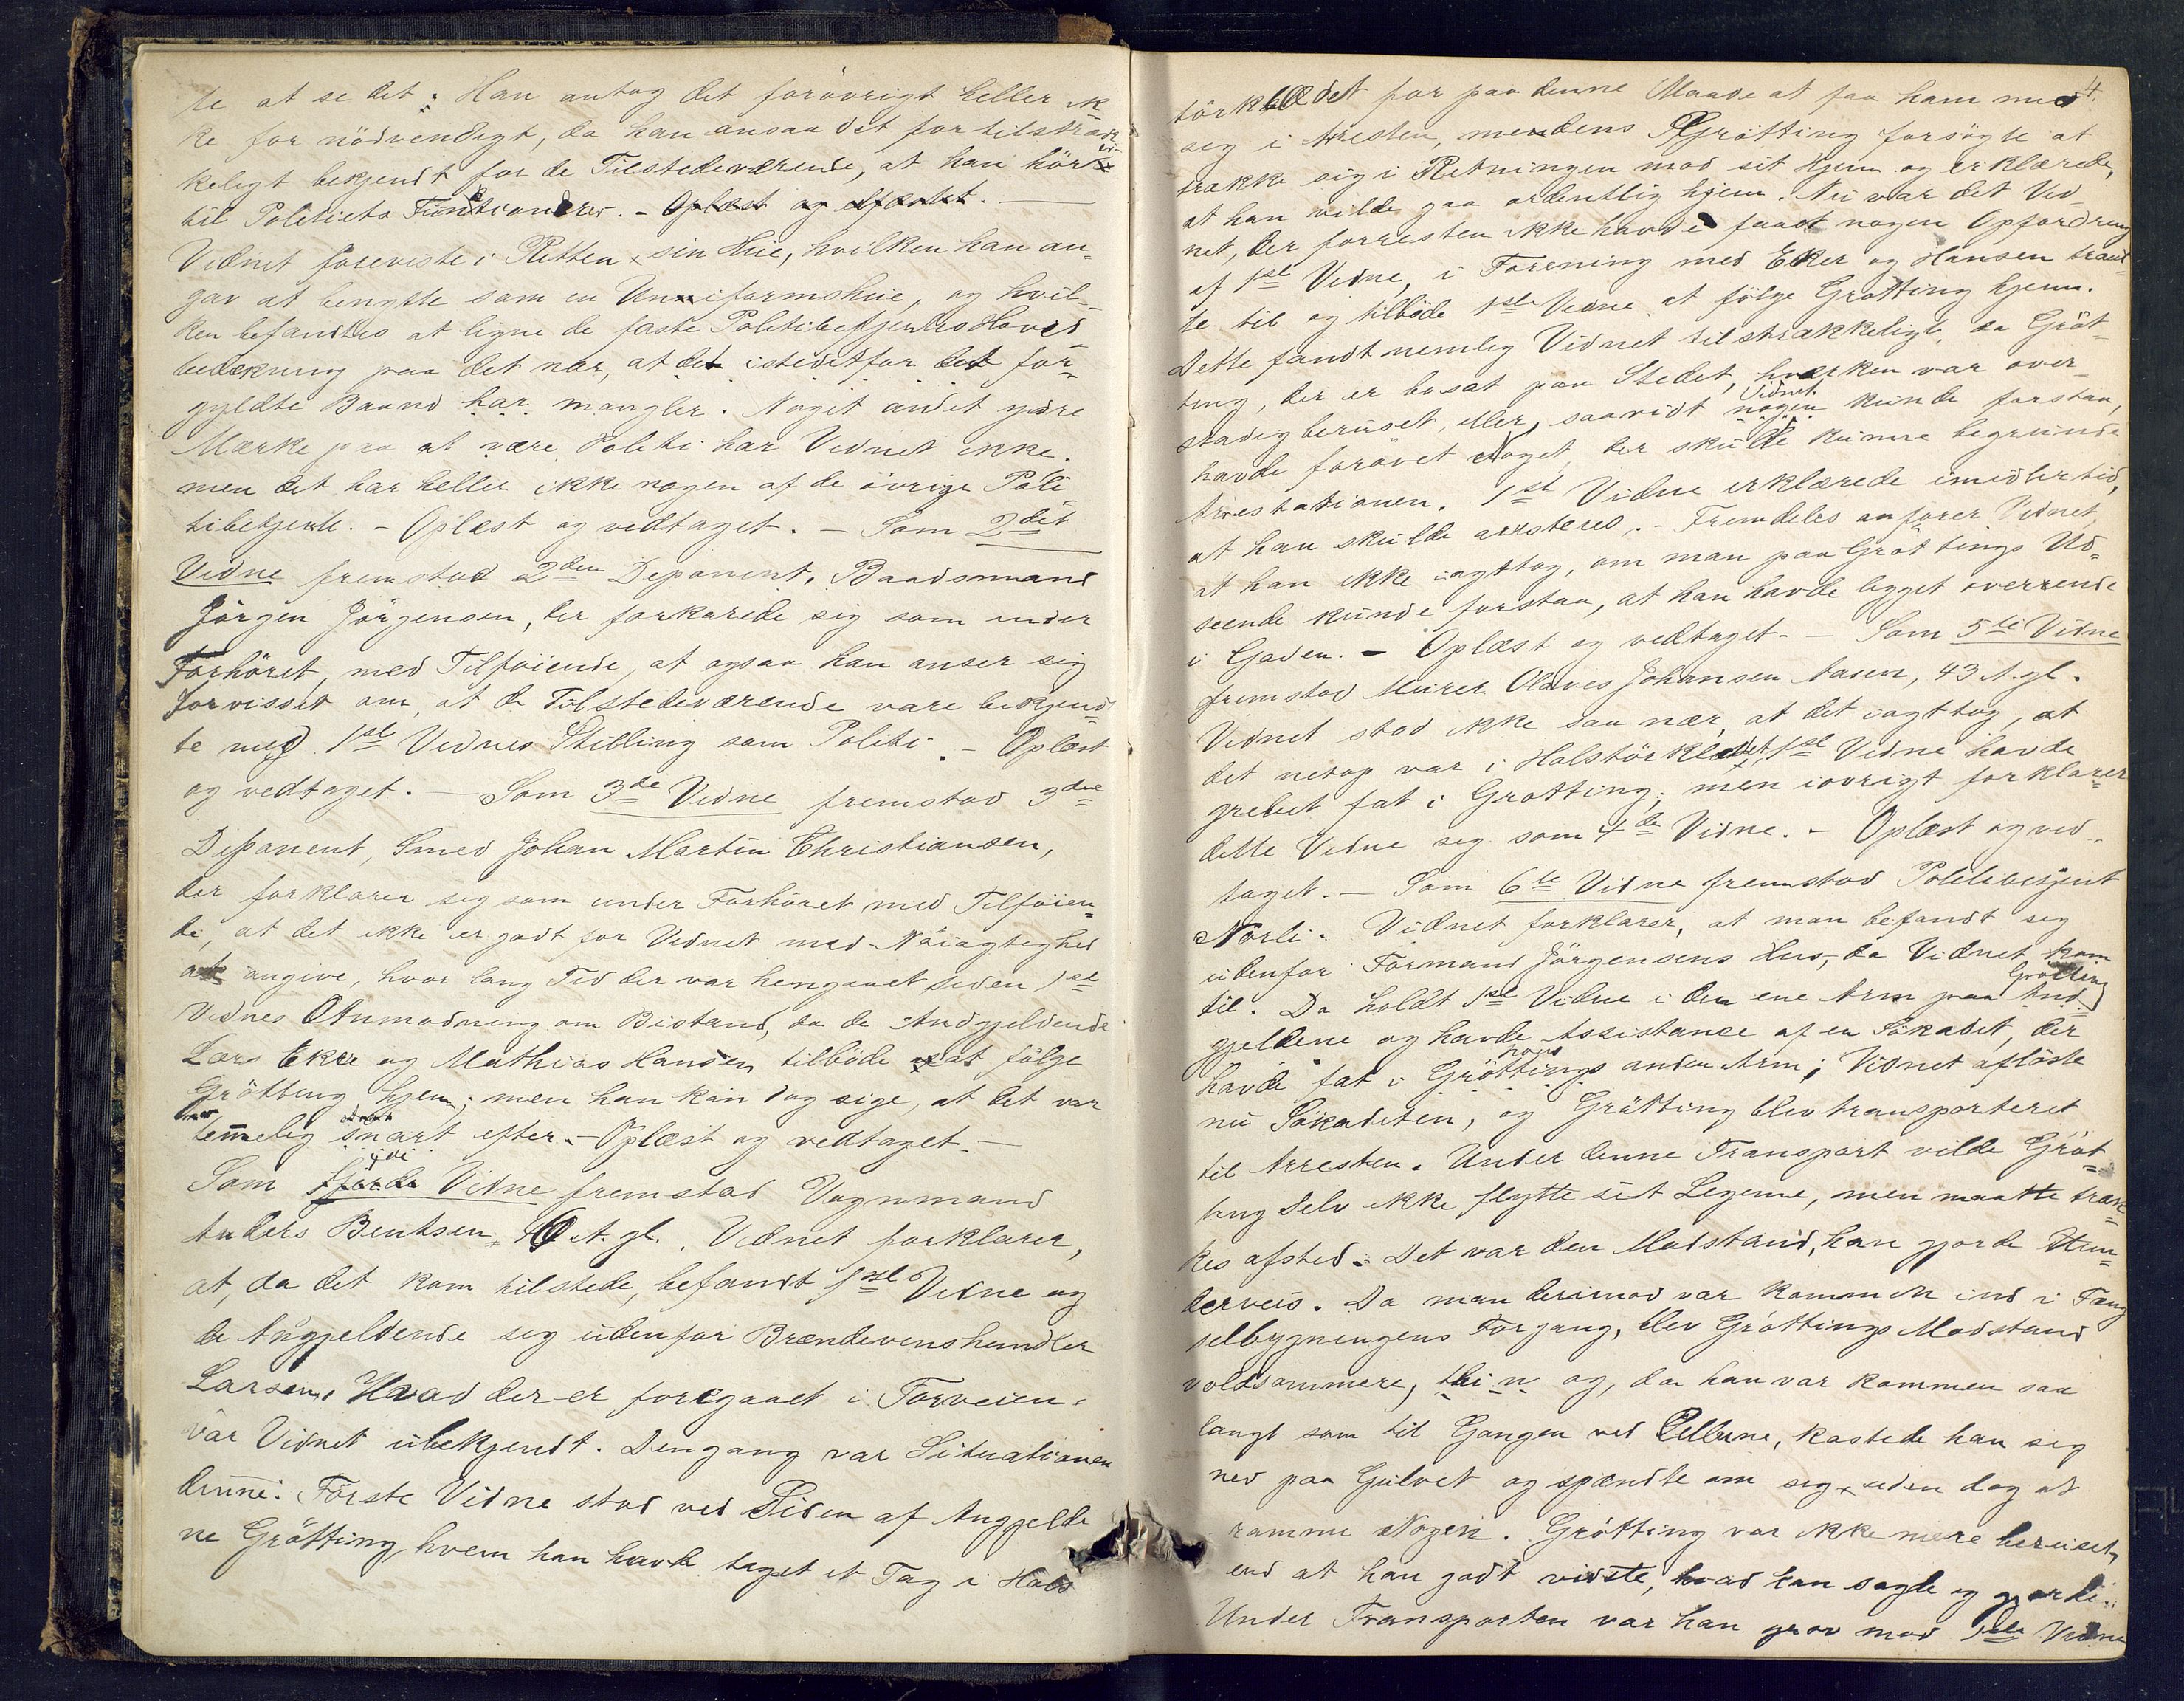 te at se det; Han antog det forövrigt heller ik
ke for nödvendigt, da han ansaa det for tilstræk
keligt bekjendt for de Tilstedeværende, at han hör
til Politiets Funktionærer. - Oplæst og
Vidnet foreviste i Retten sin Hue, hvilken han an-
gav at benytte som en Uniformshue, og hvil-
ken befandtes at ligne de faste Politibetjentes Hoved
bedækning paa det nær, at den istedetfor det for-
gyldte Baand har mangler. Noget andet ydre
Mærke paa at være Politi har Vidnet ikke.
men det har heller ikke nogen af de övrige Poli
tibetjente. - Oplæst og vedtaget. - Som 2det
Vidne fremstod 2den Deponent, Baadsmand
Jörgen Jörgensen, der forklarede sig som under
Forhöret, med Tilföiende, at ogsaa han anser sig
forvisset om, at de Tilstedeværende vare bekjend-
te med 1ste Vidnes Stilling som Politi. - Oplæst
og vedtaget. - Som 3de Vidne fremstod 3die
Deponent, Smed Johan Martin Christiansen,
der forklarer sig som under Forhöret med Tilföien-
de, at det ikke er godt for Vidnet med Nöiagtighed
at angive, hvor lang Tid der var hengaaet siden 1ste
Vidnes Anmodning om Bistand, da de Angjeldende
Lars Eker og Mathias Hansen tilböde at fölge
Grötting hjem; men han kan dog sige, at det var
temmelig snart efter. - Oplæst og vedtaget. -
Som fjerde 4de Vidne fremstod Vognmand
Anders Bentsen, A. gl. Vidnet forklarer,
at, da det kom tilstede, befandt 1ste Vidne og
de Angjeldende sig udenfor Brændevinshandler
Larsen. Hvad der er foregaaet i Forveien,
var Vidnet ubekjendt. Dengang var Situationen
denne: Förste Vidne stod ved Siden af Angjelde
ne Grötting, hvem han havde taget et Tag i Hals
4.
törklædet for paa denne Maade at faa ham med
sig i Arresten, medens Grötting forsögte at
trække sig i Retningen mod sit Hjem og erklærede,
at han vilde gaa ordentlig hjem. Nu var det Vid-
net, der forresten ikke havde faaet nogen Opfordring
af 1ste Vidne, i Forening med Eker og Hansen traad-
te til og tilböde 1ste Vidne at fölge Grötting hjem.
Dette fandt nemlig Vidnet tilstrækkeligt, da Gröt-
ting, der er bosat paa Stedet, hverken var over-
stadig beruset, eller, saavidt Vidnet kunde forstaa,
havde forövet Noget, der skulde kunne begrunde
Arrestationen. 1ste Vidne erklærede imidlertid,
at han skulde arresteres. - Fremdeles anförer Vidnet,
at han ikke iagttog, om man paa Gröttings Ud-
seende kunde forstaa, at han havde ligget overende
i Gaden. - Oplæst og vedtaget. - Som 5te Vidne
fremstod Murer Olaves Johansen Aasen, 43 A. gl.
Vidnet stod ikke saa nær, at det iagttog, at
det netop var i Halstörklædet, 1ste Vidne havde
grebet fat i Grötting; men iövrigt forklarer
dette Vidne sig som 4de Vidne. - Oplæst og ved-
taget. - Som 6te Vidne fremstod Politibetjent
Norli. Vidnet forklarer, at man befandt sig
udenfor Formand Jörgensens Hus, da Vidnet kom
til. Da holdt 1ste Vidne i den ene Arm paa Grötting
gjeldene og havde Assistance af en Sökadet, der
havde fat i Gröttings hans anden Arm; Vidnet aflöste
nu Sökadeten, og Grötting blev transporteret
til Arresten. Under denne Transport vilde Gröt-
ting selv ikke flytte sit Legeme, men maatte træk-
kes afsted. Det var den Modstand, han gjorde Un-
derveis. Da man derimod var kommen ind i Fæng
selbygningens Forgang, blev Gröttings Modstand
voldsommere, og, da han var kommen saa
langt som til Gangen ved Cellerne, kastede han sig
ned paa Gulvet og spændte om sig, uden dog at
ramme Nogen. Grötting var ikke mere beruset,
end at han godt vidste, hvad han sagde og gjorde.
Under Transporten var han grov mod 1ste Vidne